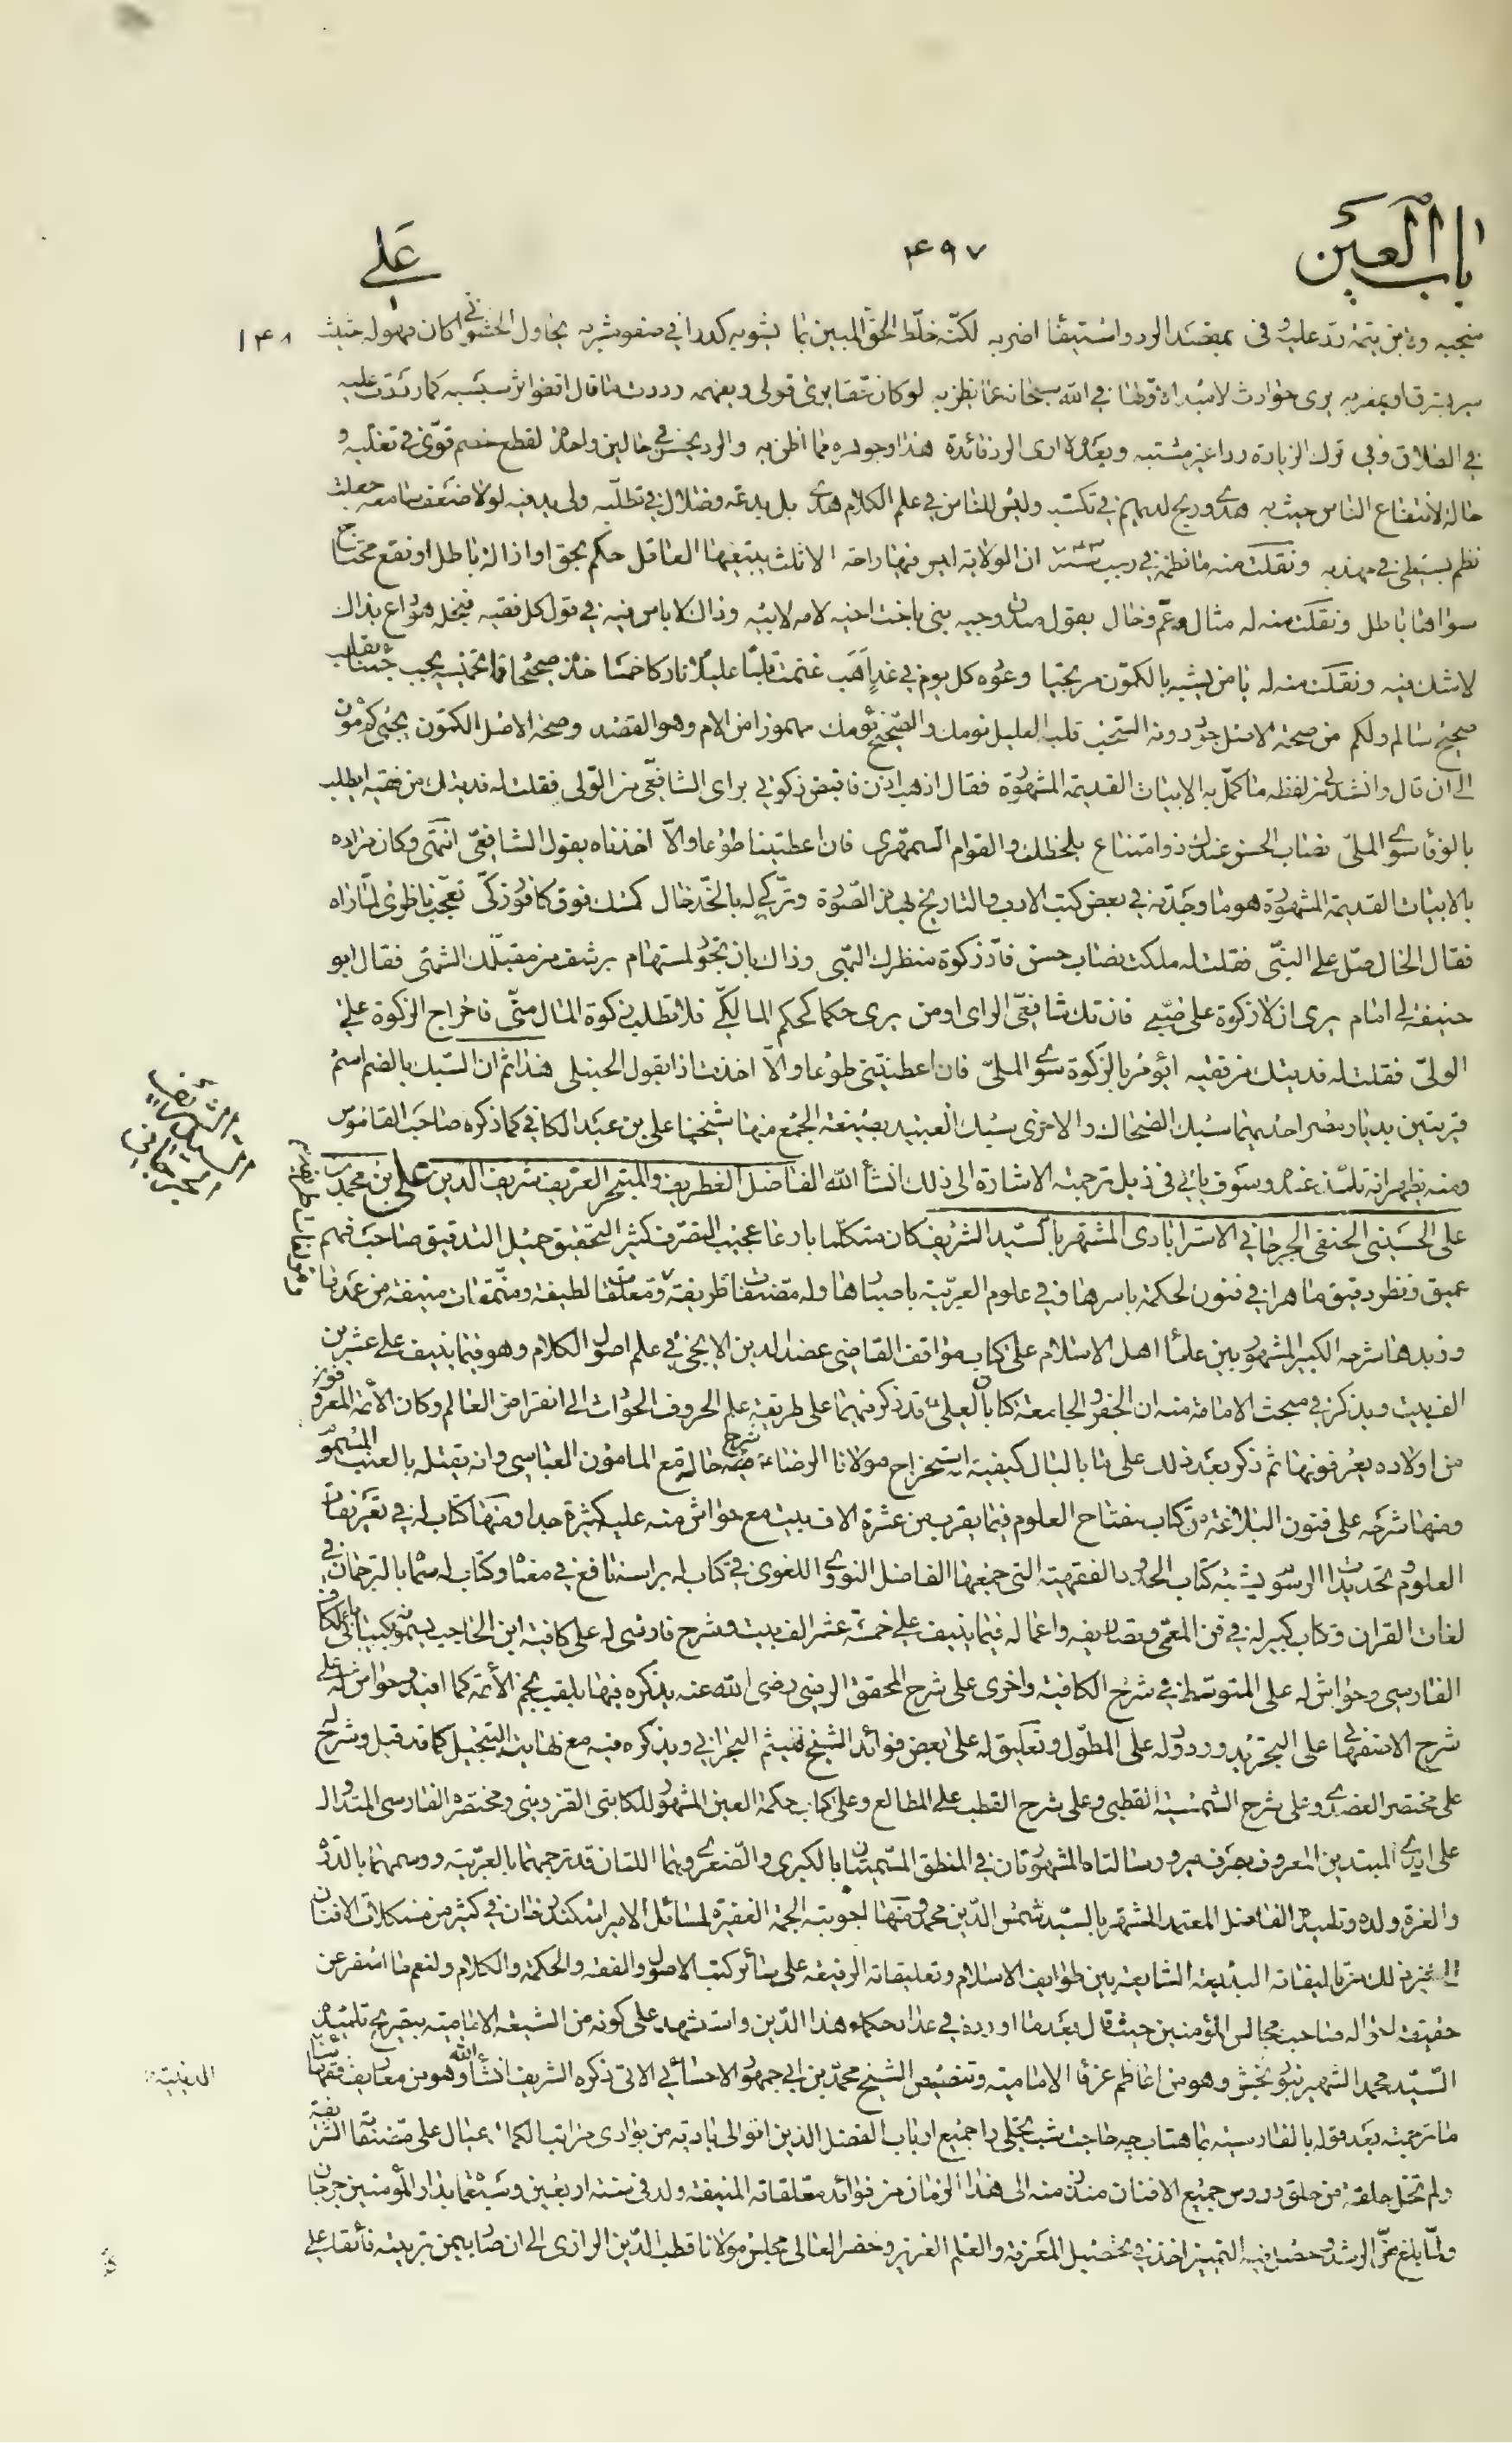 باب العين
۴۹۷
علي
۱۴۸
بمقصد الرد واستيفا اضربه لكنه خلط الحق المبين بما يشوبه كدرا في صفو مشربه يحاول الحشو انى كان فهوله حثيث
يرى حوادث لا مبداء لاولها في الله سبحانه عما يظن به لو كان حيا يرى قولى ويفهمه رددت ما قال اقفوا اثر سبسبه كما رددت عليه
في الطلاق وفى ترك الزيارة ردا غير مشتبه وبعده لا ارى للرد فائدة هذا وجوهره مما اظن به والرد يحسن في حالين واحدة لقطع خصم قوى في تغلبه و
حالة لانتفاع الناس حيث به هدى وربح لديهم في تكسبه وليس للناس في علم الكلام هدى بل بدعة وضلال في تطلبه ولى يد فيه لولا ضعف سامعه جعلت
نظم بسيطى في مهذبه ونقلت منه ما نظمه في رجب ان الولاية ليس فيها راحة الا ثلث يبتغيها العاقل حكم بحق او ازالة باطل او نفع محتاج
سواها باطل ونقلت منه له مثال عم وخال بقول صدق وجيه بنى باخت اخيه لامه لابيه وذاك لا باس فيه في قول كل فقيه فنجله هو داع بذاك
لا شك فيه ونقلت منه له يا من يشبه بالكمون مرتجيا وعوده كل يوم في غد اهب
صحيح سالم ولكم من صحة الاصل قلب العليل نومك والصحيح نؤمك مهموزا من الام وهو القصد وصحة الاصل الكمون يجئ كمون
الى ان قال وانشدنى من لفظه ما كمل به الابيات القديمة المشهورة فقال اذهب اذن فاقبض زكوتى براى الشافعى من الولى فقلت له فديتك من فقيه ايطلب
بالوفاء سوى الملى نصاب الحسن عندك ذو امتناع بلحظك والقوام السمهرى فان اعطيتنا طوعا والا اخذناه بقول الشافعى انتهى وكان مراده
بالابيات القديمة المشهورة هو ما وجدته في بعض كتب الادب والتاريخ بهذه الصورة وتركى له بالخد خال كمسك فوق كافور ذكى تعجب ناظرى لما راه
فقال الخال صل على النبى فقلت له ملكت نصاب حسن فاد زكوة منظرك البهى وذاك بان تجود لمستهام برشف من مقبلك الشهى فقال ابو
حنيفة لى امام يرى ان لا زكوة على صبى فان تك شافعى الراى او من يرى حكما كحكم المالكى فلا تطلب زكوة المال منى فاخراج الزكوة على
الولى فقلت له فديتك من فقيه ايؤمر بالزكوة سوى الملى فان اعطيتنى طوعا والا اخذت اذا بقول الحنبلى هذا ثم ان السبك بالضم اسم
قريتين بديار مصر احديهما سبك الضحاك والاخرى سبك العبيد بصيغة الجمع منها شيخنا على بن عبد الكافى كما ذكره صاحب القاموس
ومنه يظهر انه تلمذ عنده وسوف ياتى في ذيل ترجمته الاشارة الى ذلك انشاء الله الفاضل الغطريف والمتبحر العريف شريف الدين على بن محمد بن
على الحسينى الحنفى الجرجانى الاسترابادى المشتهر بالسيد الشريف كان متكلما بارعا عجيب التصرف كثير التحقيق جميل التدقيق صاحب فهم
عميق ونظر دقيق ماهرا في فنون الحكمة باسرها وفي علوم العربية باصبارها وله مصنفات ظريفة ومعلقات لطيفة ومنمقات منيفة من عمدتها
وزبدها شرحه الكبير المشهور بين علماء اهل الاسلام على كتاب مواقف القاضى عضد الدين الايجى في علم اصول الكلام وهو فيما ينيف على عشرين
الف بيت ويذكر في مبحث الامامة منه ان الجفر والجامعة كتابان لعلى ع قد ذكر فيهما على طريقة علم الحروف الحوادث الى انقراض العالم وكان الأئمة المعروفون
من اولاده يعرفونها ثم ذكر بعد ذلك على ما بالبال كيفية استخراج مولانا الرضا ع منه شرح حاله مع المامون العباسى وانه يقتله بالعنب المسموم
ومنها شرحه على فنون البلاغة من كتاب مفتاح العلوم فيما يقرب من عشرة الاف بيت مع حواش منه عليه كثيرة جدا ومنها كتاب له في تعريفات
العلوم وتحديدات الرسوم يشبه كتاب الحدود الفقهية التى جمعها الفاضل النووى اللغوى في كتاب له براسه نافع في معناه وكتاب له سماه بالترجمان في
لغات القران وكتاب كبير له في فن المعمى وتصاريفه واعماله فيما ينيف على خمسة عشر الف بيت وشرح فارسى له على كافية ابن الحاجب
الفارسى وحواش له على المتوسط في شرح الكافية واخرى على شرح المحقق الرضى رضى الله عنه يذكره فيها بلقب نجم الأئمة كما افيد وحواش له على
شرح الاصفهانى على التجريد وردود له على المطول وتعليق له على بعض فوائد الشيخ ميثم البحرانى ويذكره فيه مع نهاية التبجيل كما قد قيل وشرح له
على مختصر العضدى وعلى شرح الشمسية القطبى وعلى شرح القطب على المطالع وعلى كتاب حكمة العين المشهور للكاتبى القزوينى ومختصره الفارسى المتداول
على ايدى المبتدين المعروف بصرف مير ورسالتاه المشهورتان في المنطق المسميتان بالكبرى والصغرى وهما اللتان قد ترجمهما بالعربية ووسمهما بالدرة
والغرة ولده وتلميذه الفاضل المعتمد المشتهر بالسيد شمس الدين محمد ومنها اجوبته الجمة الغفيرة لمسائل الامير اسكندر خان في كثير من مشكلات الافنان
الى غير ذلك من تاليفاته البديعة الشايعة بين طوايف الاسلام وتعليقاته الرفيعة على سائر كتب الاصول والفقه والحكمة والكلام ولنعم ما اسفر عن
حقيقة احواله صاحب مجالس المؤمنين حيث قال بعد ما اورده في عداد حكماء هذا الدين واستشهد على كونه من الشيعة الامامية بتصريح تلميذه
السيد محمد الشهير بنوربخش وهو من اعاظم عرفاء الامامية وتنصيص الشيخ محمد بن ابى جمهور الاحسائى الاتى ذكره الشريف انشاء الله وهو من معاريف فقهائنا
ما ترجمته بعد قوله بالفارسية بماهتاب چه حاجت شب تجلى را جميع ارباب الفضل الذين اتوا الى بادية من بوادى مراتب الكمال عيال على مصنفاته الشريفة
ولم تخل حلقة من حلق دروس جميع الافنان منذ زمنه الى هذا الزمان من فوائد معلقاته المنيفة ولد في سنة اربعين وسبعمائة بدار المؤمنين جرجان
ولما بلغ حد الرشد وحصل فيه التمييز اخذ في تحصيل المعرفة والعلم الغزير وحضر العالى مجلس مولانا قطب الدين الرازى الى ان صار بيمن تربيته فائقا على
السيد الشريف
الجرجانى